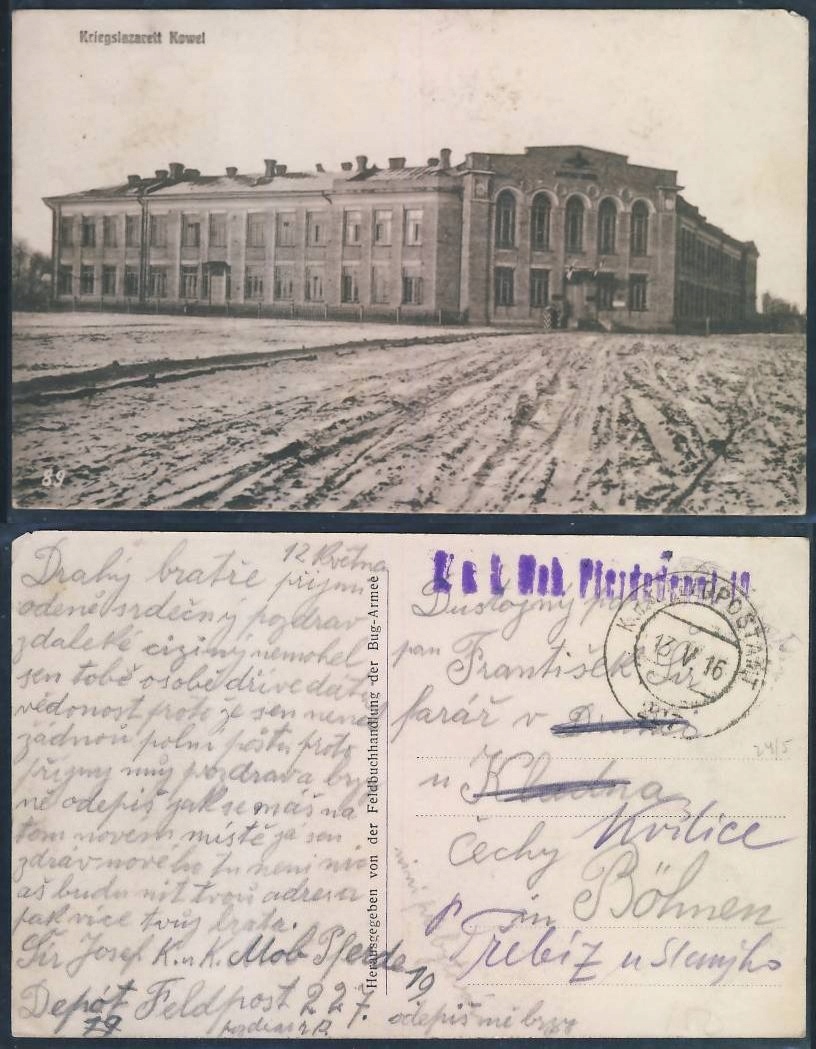 Kriegslazarett Kowel
89
12 Května
Drahý bratře přijmi
odemě srdečný pozdrav
zdaleké ciziny nemohel
sen tobě osobě dříve dáti
vědonost proto že sen neměl
žádnou polní poštu proto
přijmy můj pozdrav a brzy
mě odepiš jak se máš na
tom novem místě ja sen
zdráv nového tu neni nic
aš budu mit tvou adresu
pak více tvůj bratr.
Šír Josef K. u K. Mob Pferde
Depot Feldpost 227.
19
19
odepiš mě brzy
Herausgegeben von der Feldbuchhandlung der Bug-Armee
K u K Mob. Pferdedepot 19
K.u.K. FELDPOSTAMT
13 V 16
227
Důstojný pan
pan František Šír
farář v
u Kladna
Kvílice
Čechy
in Böhmen
p Třebíz u Slanýho
24/5